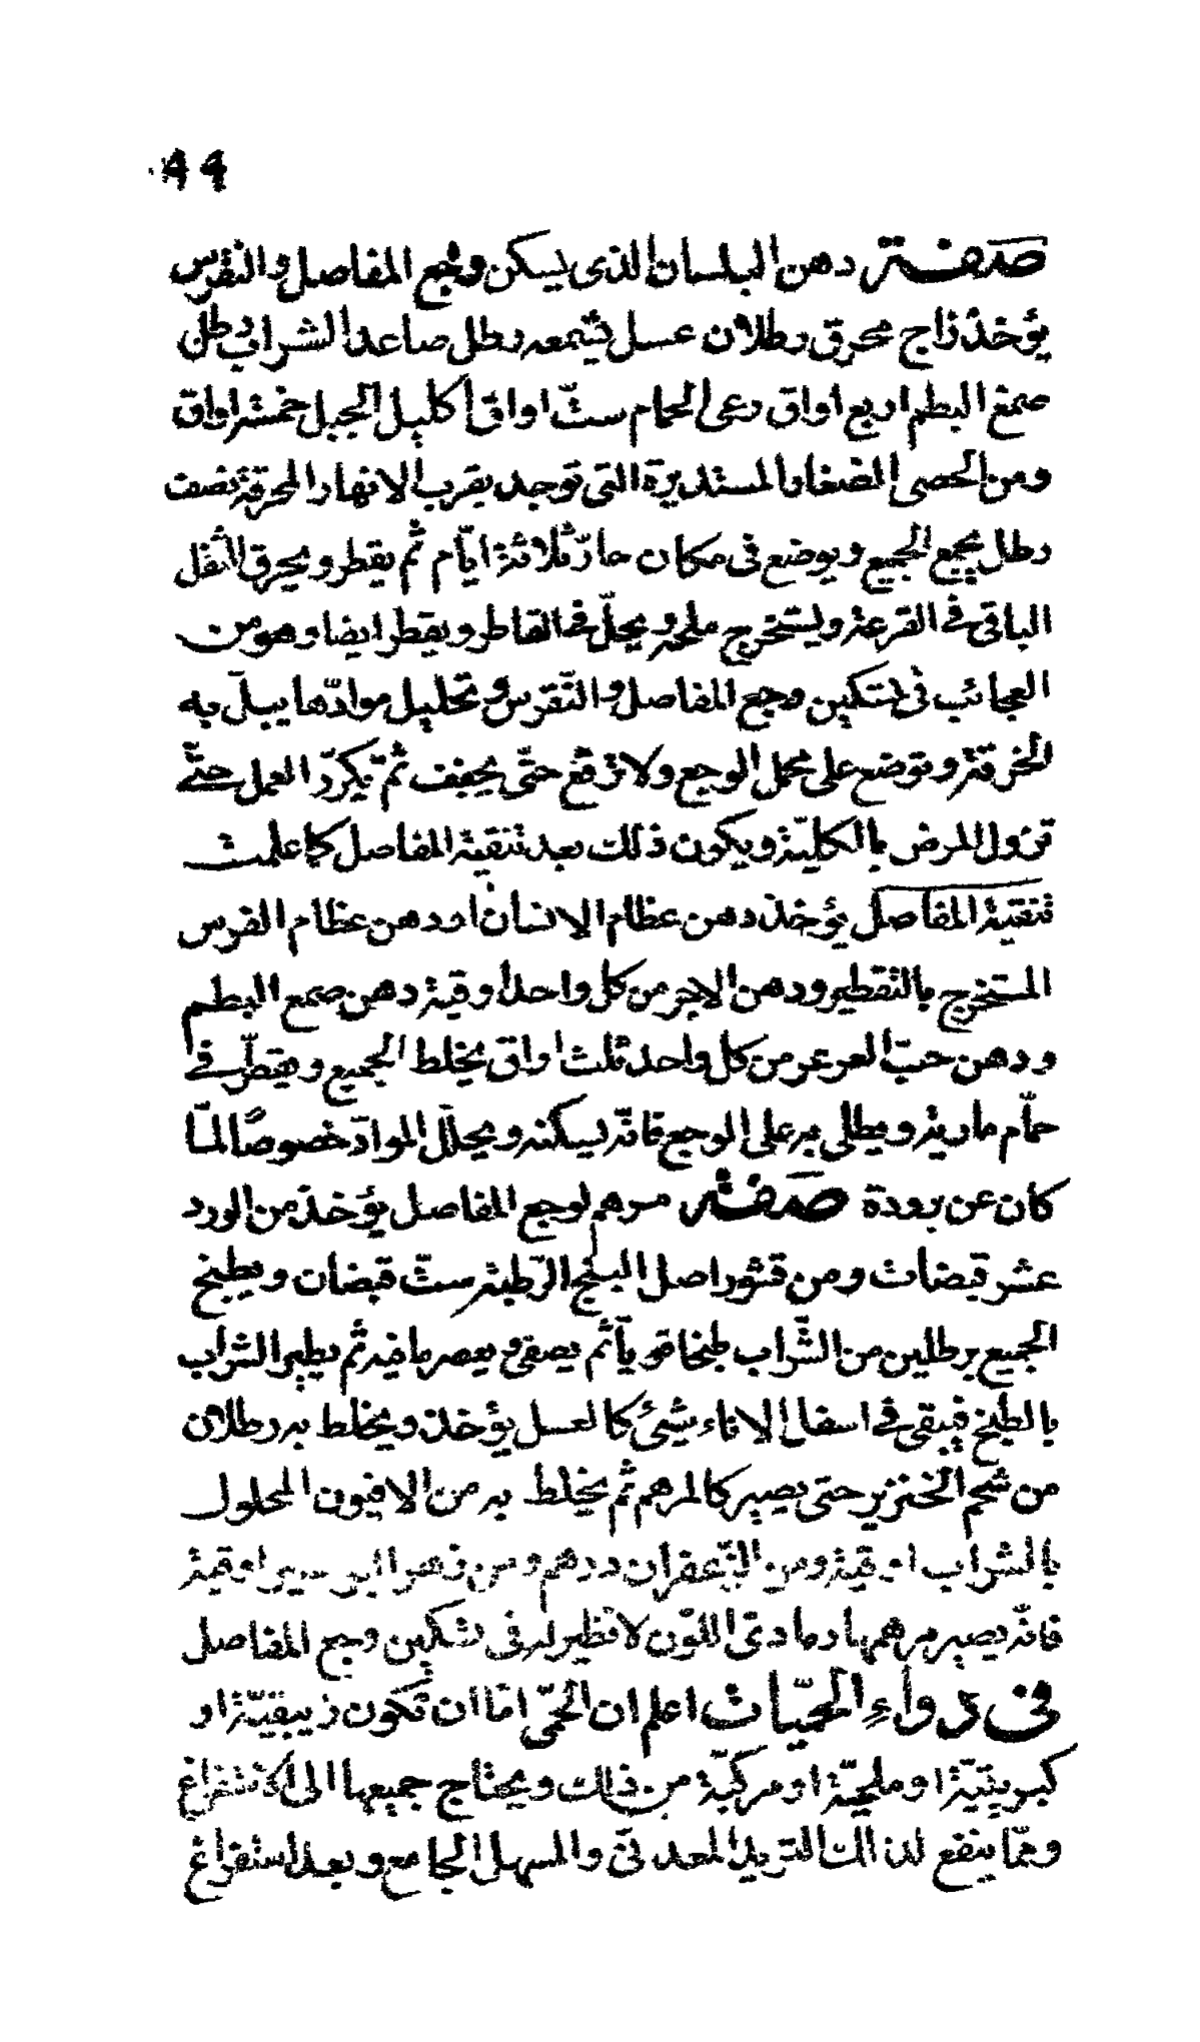 ٩٩
صفة دهن البلسان الذى يسكن وجع المفاصل والنقرس
يؤخذ زاج محرق رطلان عسل رطل صاعد الشراب رطل
صمغ البطم اربع اواق رعى الحمام ستّ اواق اكليل الجبل خمسة اواق
ومن الحصى الصغار المستديرة التى توجد بقرب الانهار المحرقة نصف
رطل يجمع الجميع ويوضع فى مكان حارّ ثلاثة ايّام ثم يقطر ويحرق الثفل
الباقى فى القرعة ويستخرج ملحه ويحلّ فى القاطر ويقطر ايضا وهو من
العجائب فى تسكين وجع المفاصل والنّقرس و تحليل موادّها يبلّ به
الخرقة وتوضع على محل الوجع ولا ترفع حتّى يجفف ثمّ يكرّر العمل حتّى
تزول المرض بالكليّة ويكون ذلك بعد تنقية المفاصل كما علمت
تنقية المفاصل يؤخذ دهن عظام الانسان او دهن عظام الفرس
المستخرج بالتقطير ودهن الاجر من كل واحد اوقية دهن صمع البطم
ودهن حبّ العرعر من كل واحد ثلث اواق يخلط الجميع ويقطّر فى
حمّام مارية ويطلى به على الوجع فانّه يسكنه ويحلّل الموادّ خصوصًا لمّا
كان عن برودة صفة مرهم لوجع المفاصل يؤخذ من الورد
عشر قبضات ومن قشور اصل البنج الرّطبة ستّ قبضان ويطبخ
الجميع برطلين من الشّراب طبخا قويّا ثم يصفى ويعصر ما فيه ثم يطير الشراب
بالطبخ فيبقى فى اسفل الاناء شئ كالعسل يؤخذ ويخلط به رطلان
من شحم الخنزير حتى يصير كالمرهم ثم يخلط به من الافيون المحلول
بالشراب اوقية ومن الزّعفران درهم ومن اوقية
فانّه يصير مرهما رمادىّ اللّون لا نظير له فى تسكين وجع المفاصل
فى دواء الحمّيات اعلم ان الحمّى امّا ان تكون زيبقيّة او
كبريتيّة او ملحيّة او مركبّة من ذلك ويحتاج جميعها الى الاستفراغ
وممّا ينفع لذالك التربد المعدنىّ والمسهل الجامع وبعد استفراغ